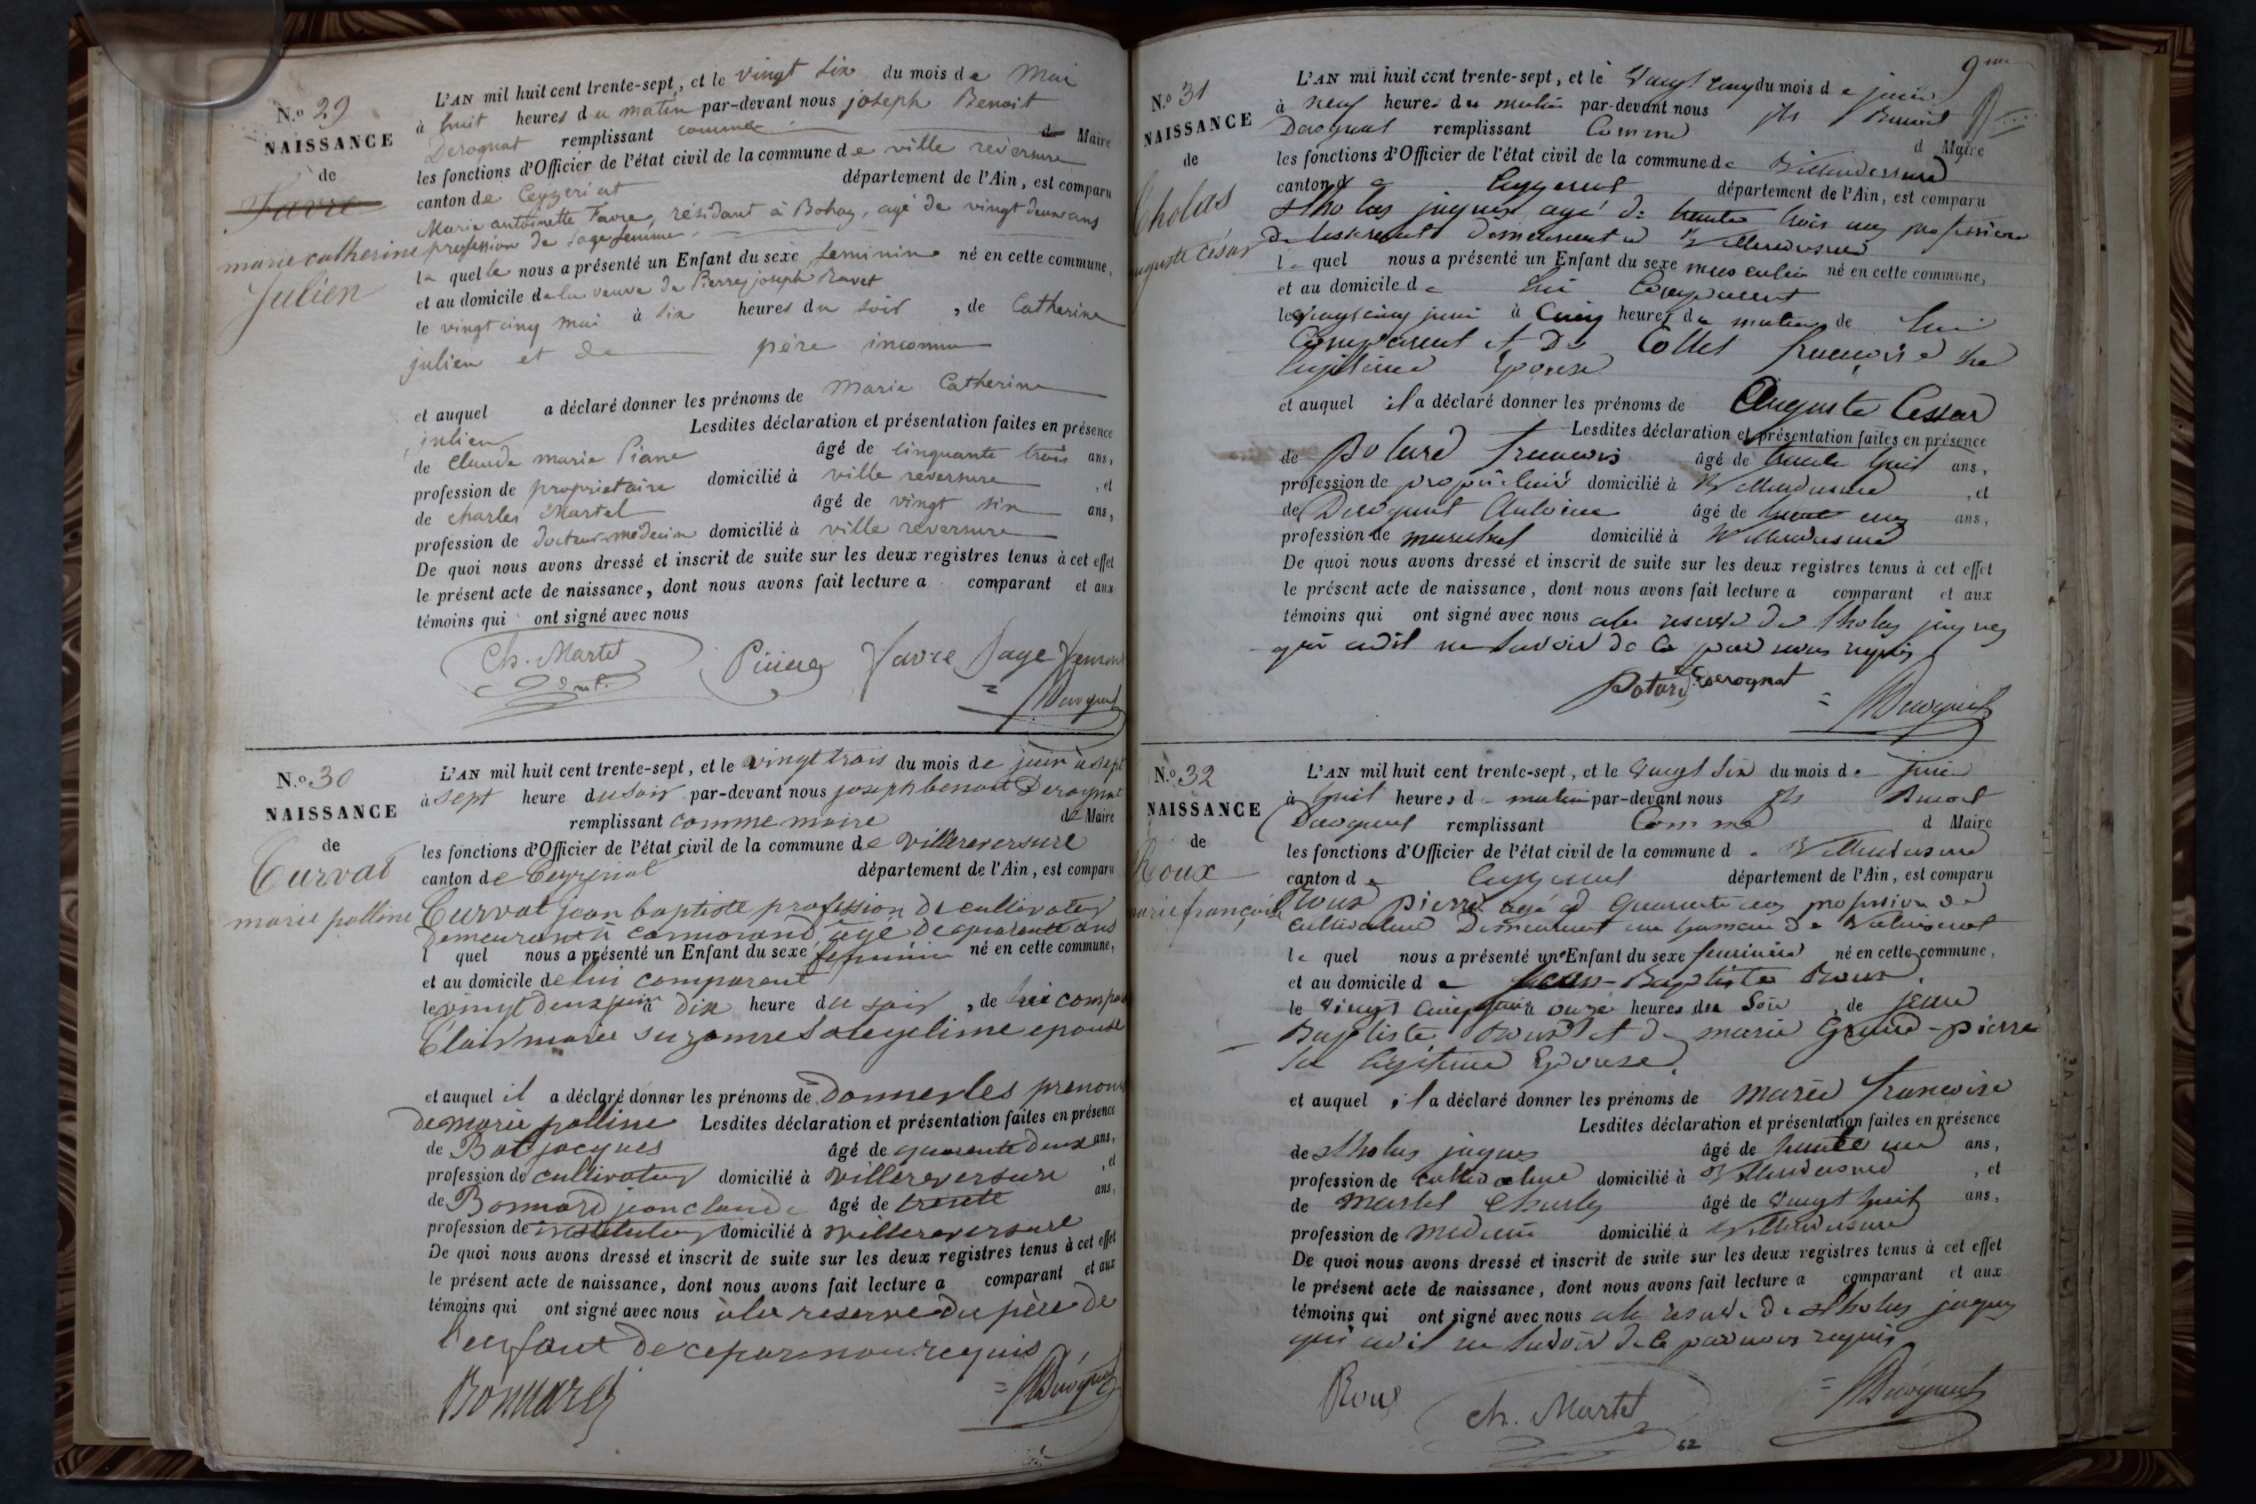 N.o 29
NAISSANCE
de
Favre
marie catherine
Julien
L'AN mil huit cent trente-sept, et le vingt six du mois de Mai
à huit heures du matin par-devant nous joseph Benoit
Derognat remplissant comme de Maire
les fonctions d'Officier de l'état civil de la commune de ville reversure
canton de Ceyzeriat département de l'Ain, est comparu
Marie antoinette Favre, résidant à Bohaz, agé de vingt deux ans
profession de sage femme
la quelle nous a présenté un Enfant du sexe feminin né en cette commune,
et au domicile de la veuve de Pierre joseph Ravet
le vingt cinq mai à six heures du soir, de Catherine
julien et de père inconnu
et auquel a déclaré donner les prénoms de Marie Catherine
julien Lesdites déclaration et présentation faites en présence
de Claude marie Piane âgé de cinquante trois ans,
profession de propriétaire domicilié à ville reversure, et
de charles Martel âgé de vingt six ans,
profession de docteur médecin domicilié à ville reversure
De quoi nous avons dressé et inscrit de suite sur les deux registres tenus à cet effet
le présent acte de naissance, dont nous avons fait lecture a comparant et aux
témoins qui ont signé avec nous
Ch. Martel Favre Sage femme
d.m.p.
Derognat
N.o 30
NAISSANCE
de
Curvat
marie polline
L'AN mil huit cent trente-sept, et le vingt trois du mois de juin à sept
à sept heure du soir par-devant nous joseph benoit Derognat
remplissant comme maire de Maire
les fonctions d'Officier de l'état civil de la commune de villereversure
canton de Ceyzeriat département de l'Ain, est comparu
Curvat jean baptiste profession de cultivateur
demeurant à cormorand, agé de quarante ans
l quel nous a présenté un Enfant du sexe feminin né en cette commune,
et au domicile de lui comparant
le vingt deux juin à dix heure du soir, de lui compa
Clair marie suzanne sa legitime epouse
et auquel il a déclaré donner les prénoms de donner les prenoms
de marie polline Lesdites déclaration et présentation faites en présence
de Bat jacques âgé de quarante deux ans,
profession de cultivateur domicilié à villereversure, et
de Bonnard jean claude âgé de trente ans,
profession de instituteur domicilié à villereversure
De quoi nous avons dressé et inscrit de suite sur les deux registres tenus à cet effet
le présent acte de naissance, dont nous avons fait lecture a comparant et aux
témoins qui ont signé avec nous à la reserve du père de
l'enfant de ce par nous requis
Bonnard Derognat
9me
N.o 31
NAISSANCE
de
Cholas
auguste César
L'AN mil huit cent trente-sept, et le vingt cinq du mois de juin
à neuf heures du matin par-devant nous jh Benoit
Derognat remplissant Comme d Maire
les fonctions d'Officier de l'état civil de la commune de Villereversure
canton de Ceyzeriat département de l'Ain, est comparu
Tholas jaques agé de trente trois ans profession
de tisserand demeurant à Villereversure
le quel nous a présenté un Enfant du sexe masculin né en cette commune,
et au domicile de lui Comparant
le vingt cinq juin à Cinq heures du matin de lui
Comparant et De Collet francoise sa
légitime Epouse
et auquel il a déclaré donner les prénoms de Auguste Cessar
Lesdites déclaration et présentation faites en présence
de Poturd francois âgé de trente huit ans,
profession de propriétaire domicilié à Villereversure, et
de Derognat Antoine âgé de ans,
profession de marechal domicilié à Villereversure
De quoi nous avons dressé et inscrit de suite sur les deux registres tenus à cet effet
le présent acte de naissance, dont nous avons fait lecture a comparant et aux
témoins qui ont signé avec nous a la reserve de Tholas jaques
qui a dit ne savoir de ce par nous requis
Potard Derognat Derognat
N.o 32
NAISSANCE
de
Roux
marie françoise
L'AN mil huit cent trente-sept, et le vingt six du mois de juin
à huit heures d matin par-devant nous jh Benoit
Derognat remplissant Comme d Maire
les fonctions d'Officier de l'état civil de la commune d Villereversure
canton de Ceyzeriat département de l'Ain, est comparu
Roux pierre agé d quarante ans profession de
cultivateur Demeurant au hameau de Noblens
le quel nous a présenté un Enfant du sexe feminin né en cette commune,
et au domicile de jean-Baptiste Roux
le vingt cinq juin à onze heures du Soir, de jean
Baptiste Roux et de marie Grand-pierre
sa légitime Epouse
et auquel il a déclaré donner les prénoms de marie francoise
Lesdites déclaration et présentation faites en présence
de Tholas jaques âgé de trente ans,
profession de cultivateur domicilié à Villereversure, et
de Martel Charles âgé de vingt huit ans,
profession de medecin domicilié à Villereversure
De quoi nous avons dressé et inscrit de suite sur les deux registres tenus à cet effet
le présent acte de naissance, dont nous avons fait lecture a comparant et aux
témoins qui ont signé avec nous a la reserve de Tholas jaques
qui a dit ne savoir de ce par nous requis
Roux Ch. Martel Derognat
62